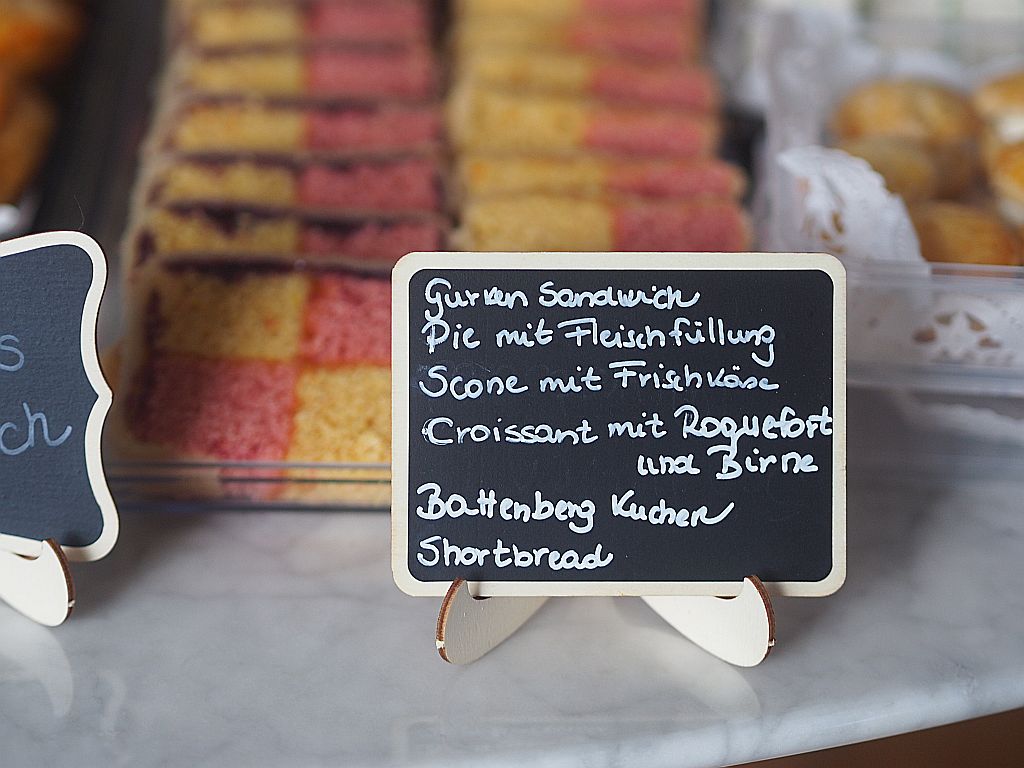 s
ch
Gurken Sandwich
Pie mit Fleischfüllung
Scone mit Frischkäse
Croissant mit Roquefort
und Birne
Battenberg Kuchen
Shortbread